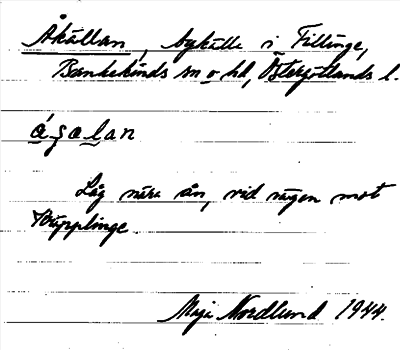 Åkällan, bykälla i Fillinge,
Bankekinds sn o hd, Östergötlands l.
ágalan
Låg nära ån, vid vägen mot
Mija Nordlund 1944.